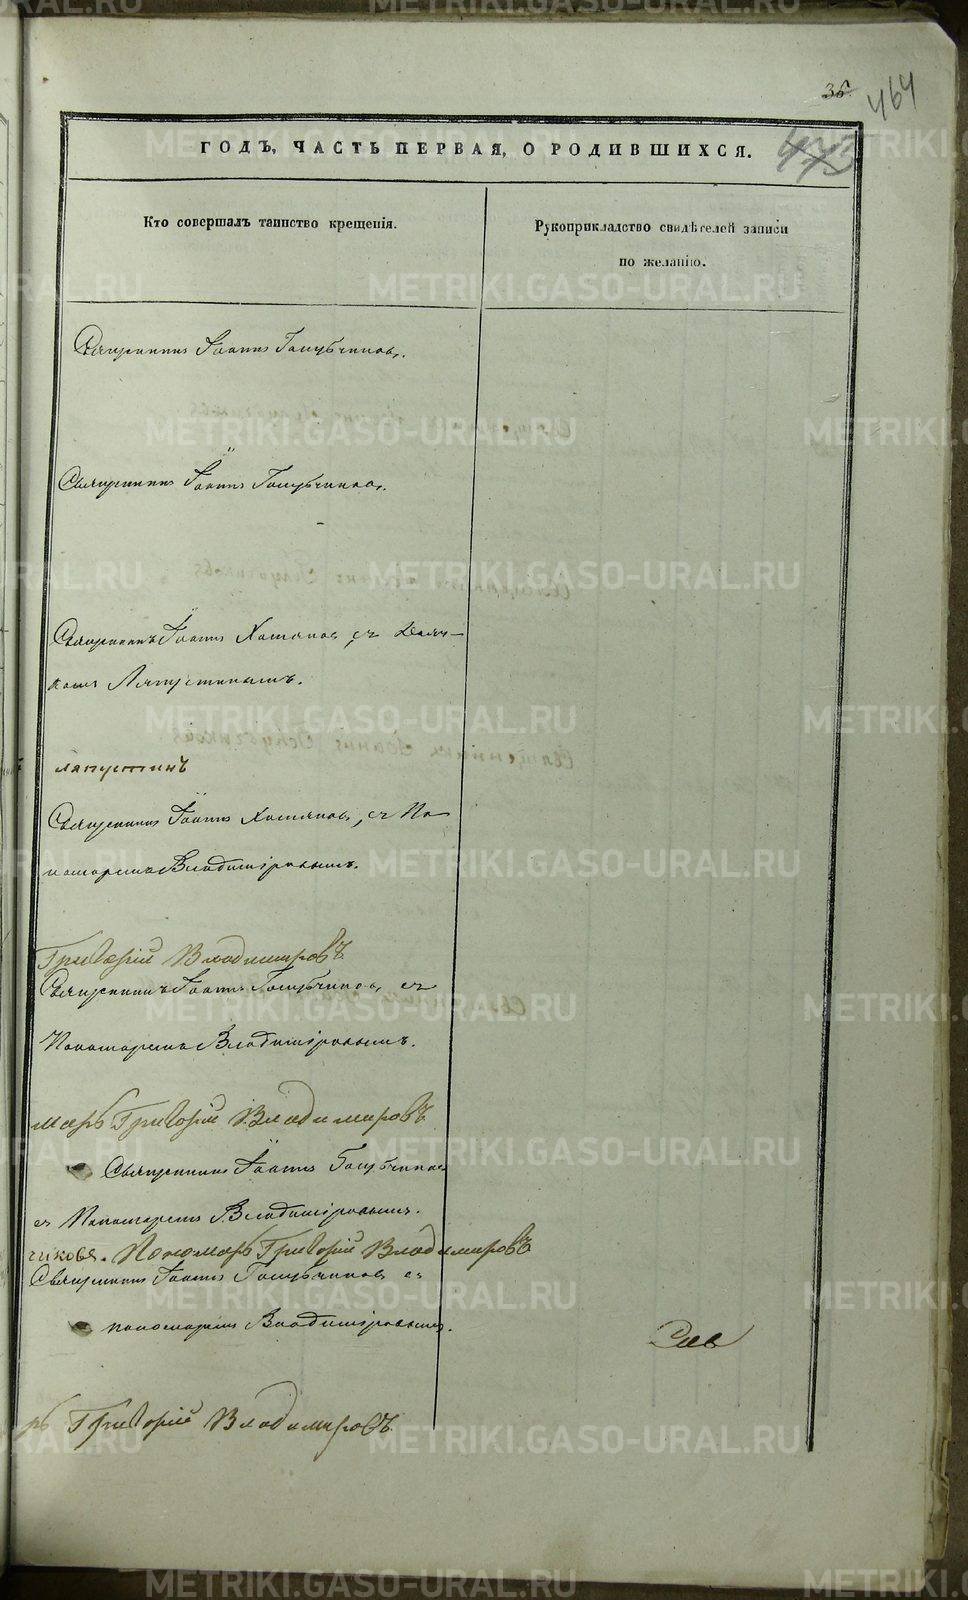 36
464
ГОДЪ, ЧАСТЬ ПЕРВАЯ, О РОДИВШИХСЯ.
Кто совершалъ таинство крещенія.
Рукоприкладство свидѣтелей записи
по желанію.
Священникъ Іоаннъ Голубчиковъ.
Священникъ Іоаннъ Голубчиковъ.
Священникъ Іоаннъ Хотяновъ, съ Дьяч-
комъ Ляпустинымъ.
ляпустинъ
Священникъ Іоаннъ Хотяновъ, съ По
номаремъ Владиміровымъ.
Григорій Владимировъ
Священникъ Іоаннъ Голубчиковъ съ
Пономаремъ Владиміровымъ.
марь Григорій Владимировъ
Священникъ Іоаннъ Голубчиковъ
съ Пономаремъ Владиміровымъ.
чиковъ. Пономарь Григорій Владимировъ
Священникъ Іоаннъ Голубчиковъ съ
пономаремъ Владиміровымъ.
рь Григорій Владимировъ
METRIKI.GASO-URAL.RU